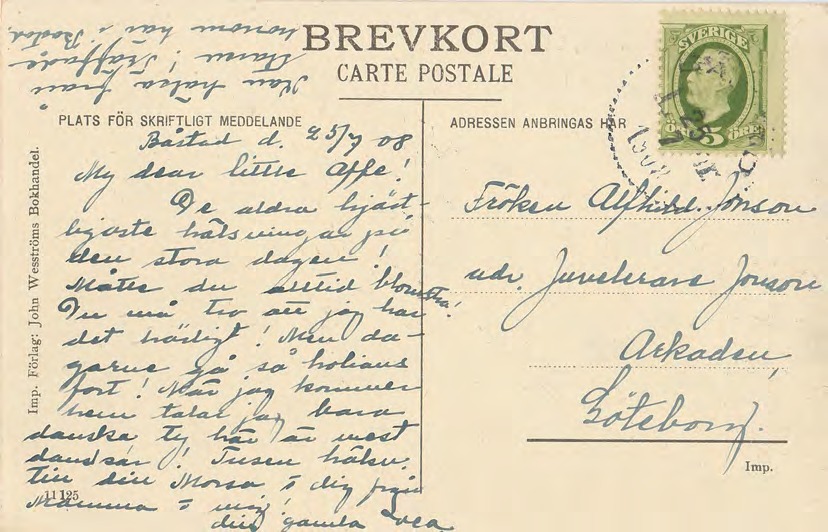 BREVKORT
CARTE POSTALE
PLATS FÖR SKRIFTLIGT MEDDELANDE
ADRESSEN ANBRINGAS HÄR
SVERIGE
5 ÖRE
Båstad d. 25/7 08
My dear little Affe!
De aldra hjärt-
ligaste hälsningar på
den stora dagen!
Måtte du alltid blomstra!
Du må tro att jag har
det härligt! Men da-
garne gå så
fort! När jag kommer
hem talar jag bara
danska ty här är mest
danskar! Tusen hälsn.
till din Morsa & dig från
Mamma & mig!
din gamla Svea
Kan hälsa från
! Träffade
honom här i Båstad
Fröken Alfhild Jonson
adr. Juvelerare Jonson
Arkaden,
Göteborg.
Imp.
Imp. Förlag: John Wesströms Bokhandel.
11125